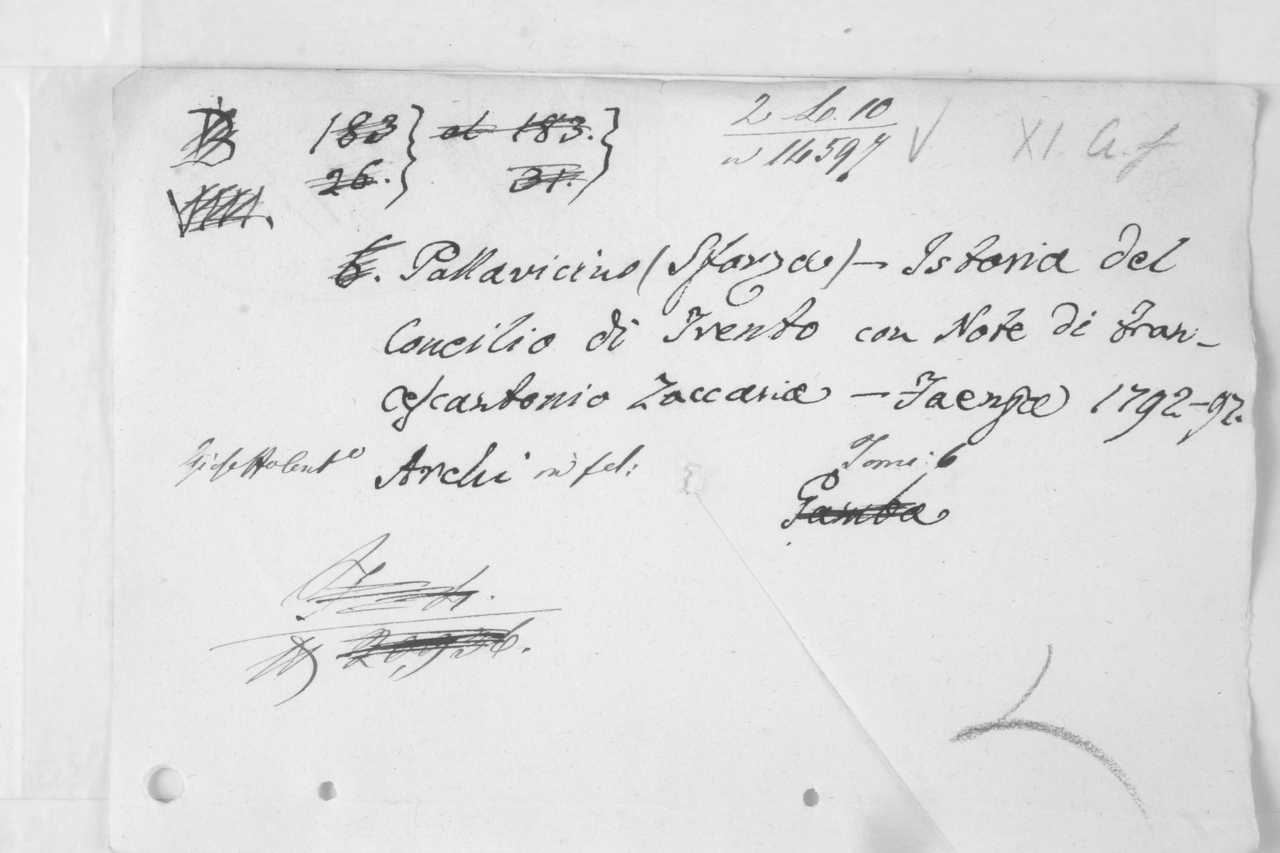 183 } al 183. } 2 Lo. 10 XI. A. f
26. } 31. } n 14597
Pallavicino (Sforza) – Istoria del
Concilio di Trento con Note di Fran-
cescantonio Zaccaria – Faenza 1792-97.
Archi in fol: Tomi: 6
Gamba